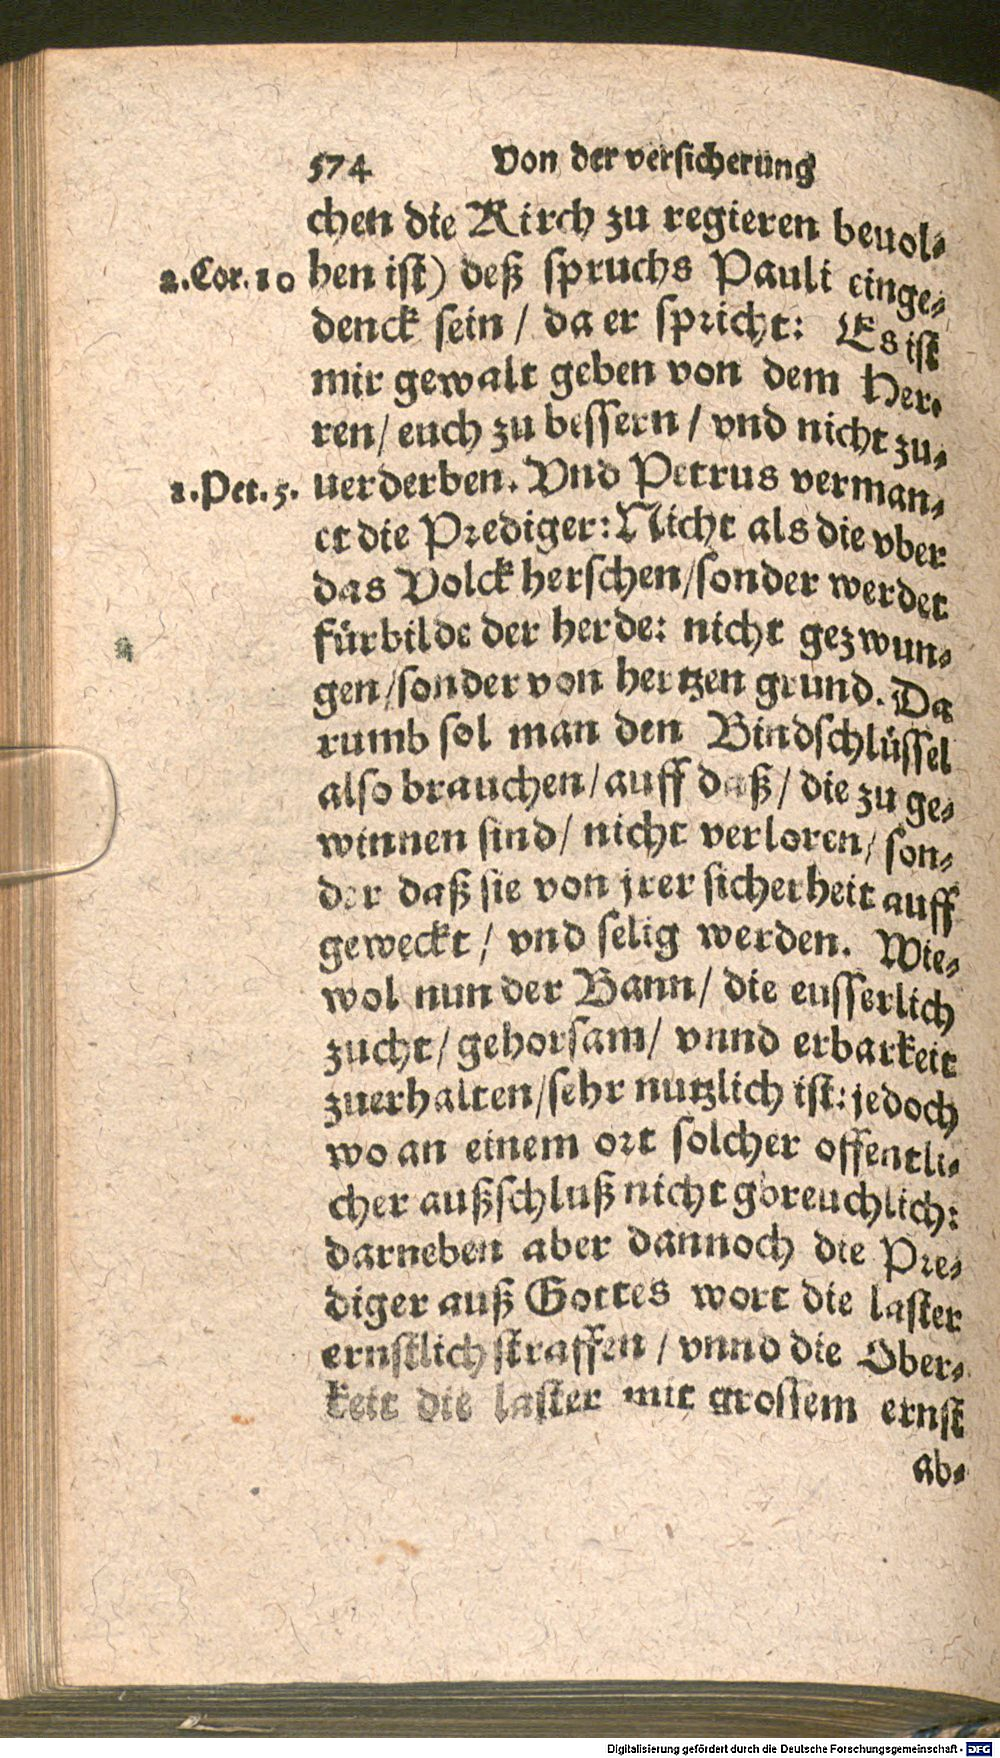 574 Von der versicherung
chen die Kirch zu regieren beuol-
2.Cor.10 hen ist) deß spruchs Pauli einge-
denck sein / da er spricht: Es ist
mir gewalt geben von dem Her-
ren / euch zu bessern / vnd nicht zu-
1.Pet.5. uerderben. Vnd Petrus verman-
et die Prediger: Nicht als die vber
das Volck herschen / sonder werdet
fürbilde der herde: nicht gezwun-
gen / sonder von hertzen grund. Da
rumb sol man den Bindschlüssel
also brauchen / auff daß / die zu ge-
winnen sind / nicht verloren / son-
der daß sie von jrer sicherheit auff
geweckt / vnd selig werden. Wie-
wol nun der Bann / die eusserlich
zucht / gehorsam / vnnd erbarkeit
zuerhalten / sehr nutzlich ist: jedoch
wo an einem ort solcher offentli-
cher außschluß nicht gbreuchlich:
darneben aber dannoch die Pre-
diger auß Gottes wort die laster
ernstlich straffen / vnnd die Ober-
keit die laster mit grossem ernst
ab-
Digitalisierung gefördert durch die Deutsche Forschungsgemeinschaft - DFG